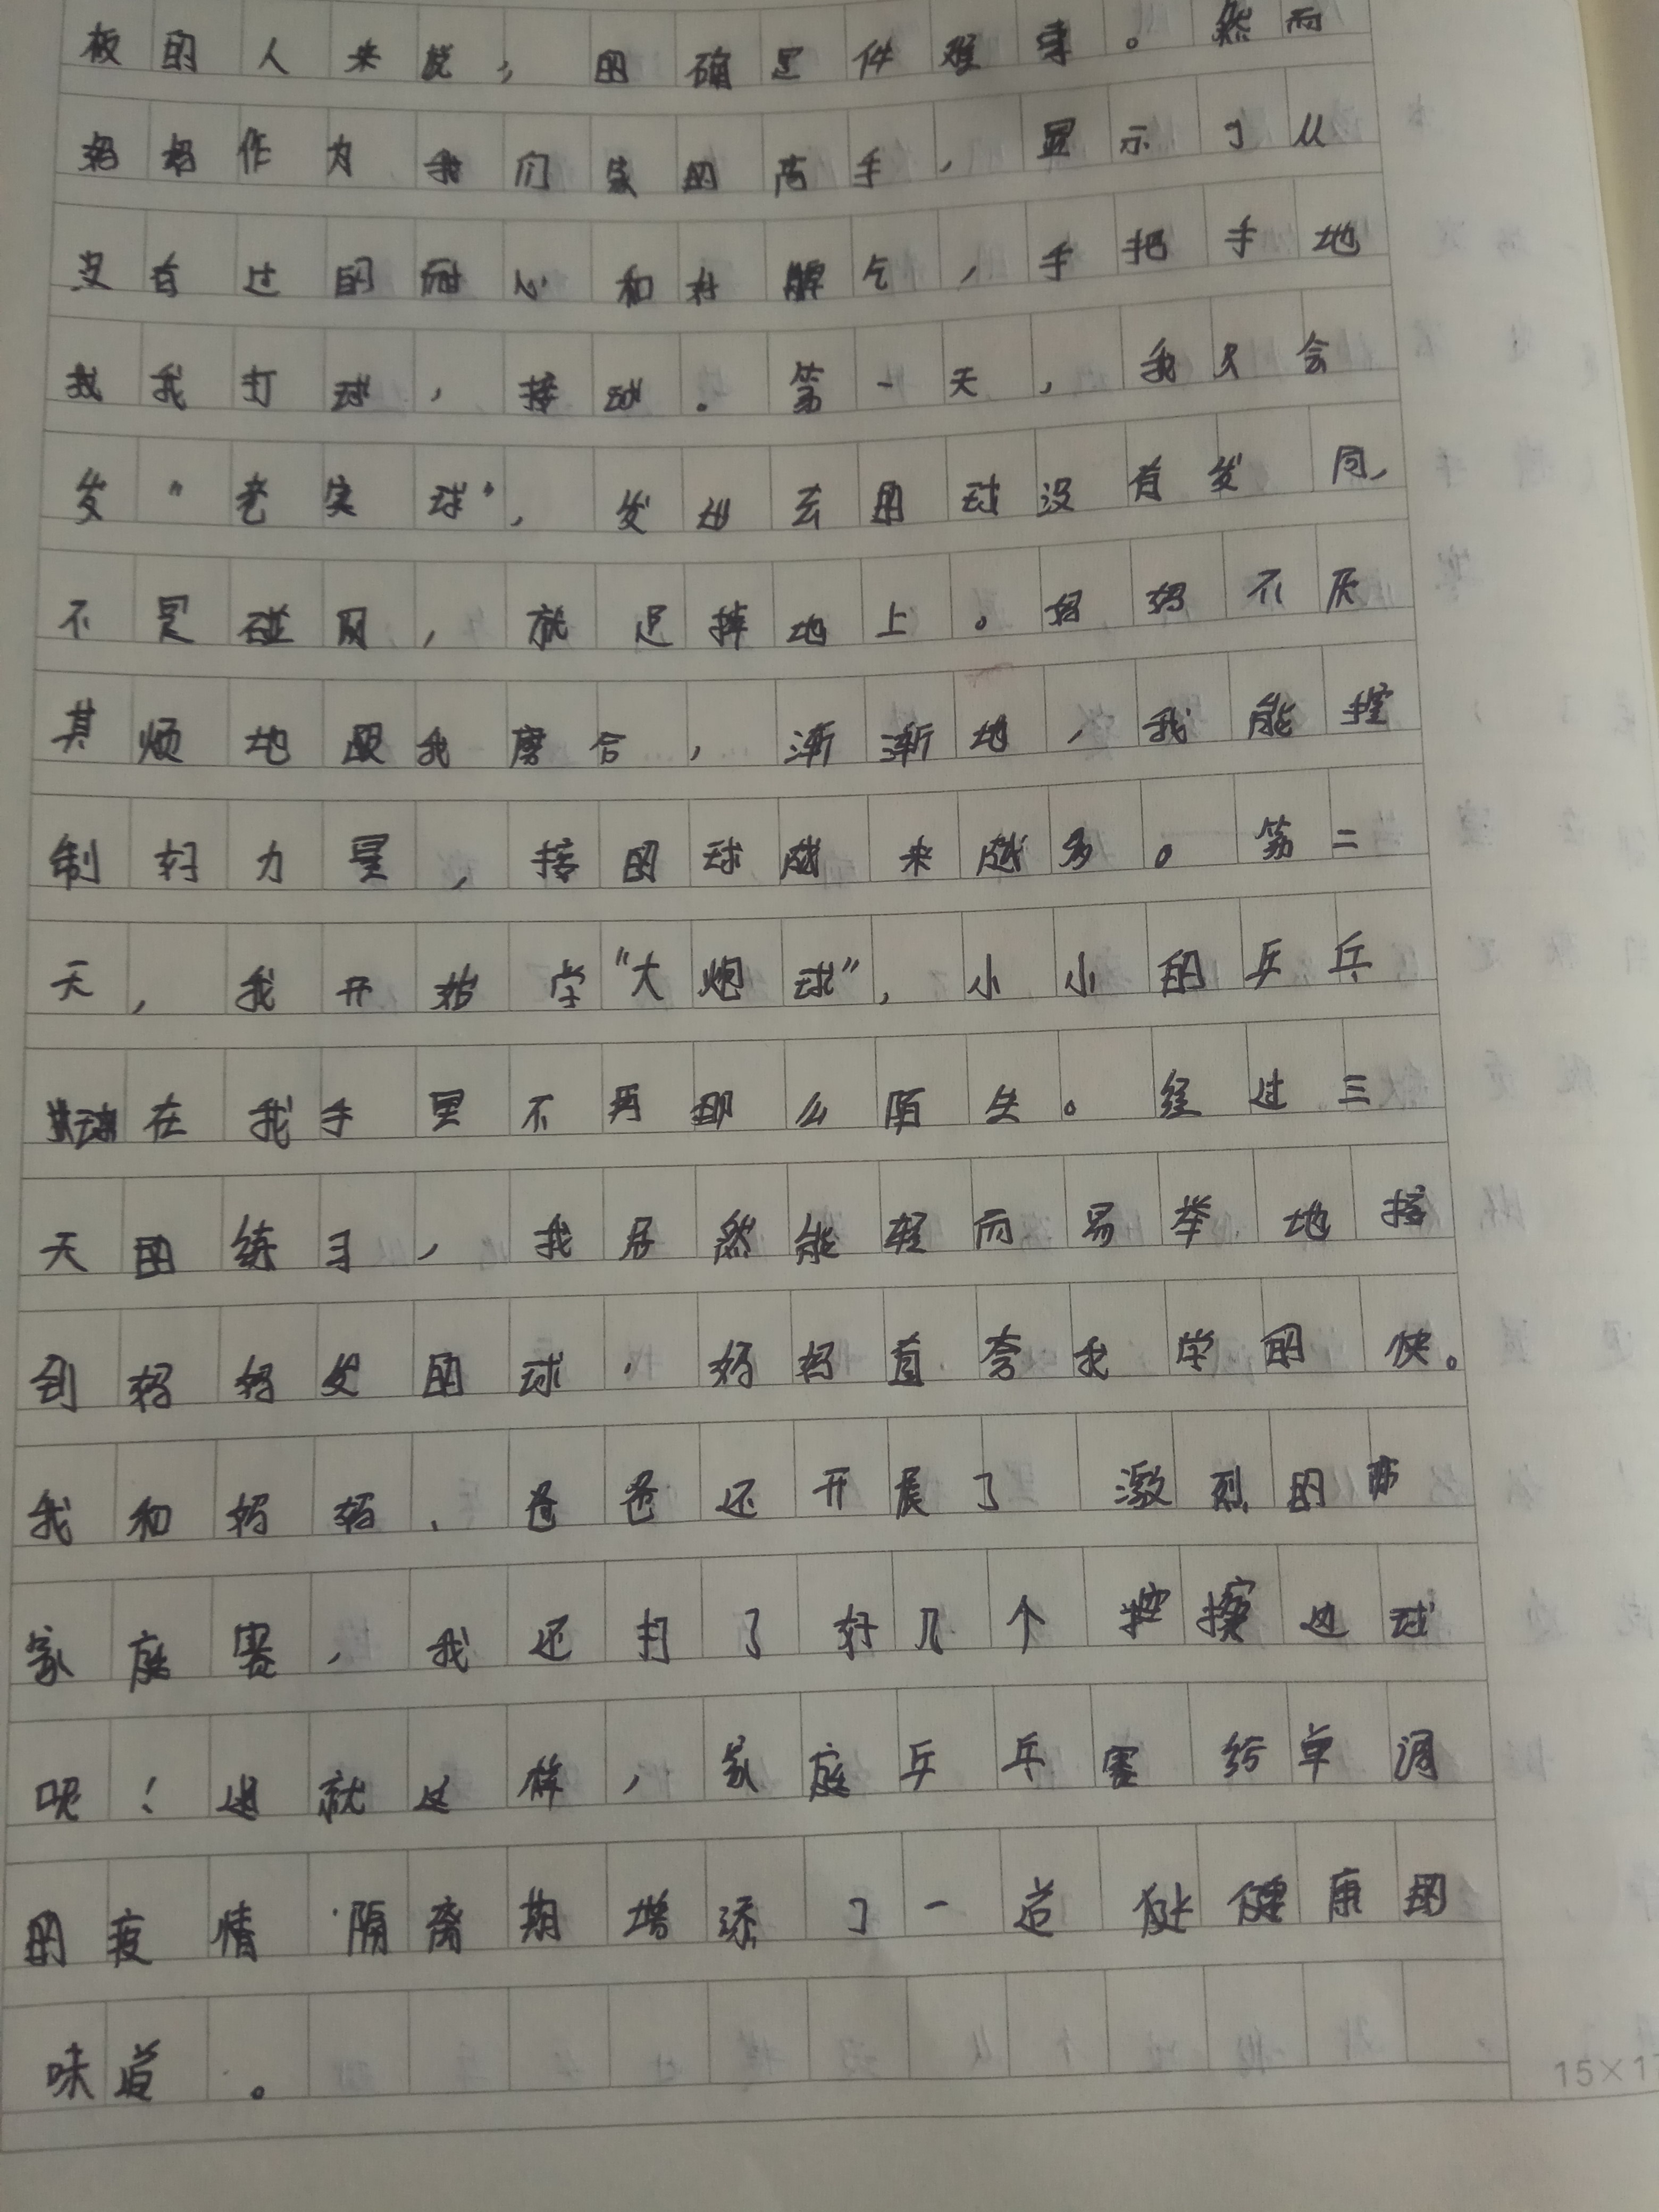 板的人来说，的确是件难事。然而
妈妈作为我们家的高手，显示了从
没有过的耐心和好脾气，手把手地
教我打球，接球。第一天，我只会
发“老实球”，发出去的球没有发 同，
不是碰网，就是掉地上。妈妈不厌
其烦地跟我磨合，渐渐地，我能控
制好力量，接的球越来越多。第二
天，我开始学“大炮球”，小小的乒乓
球在我手里不再那么陌生。经过三
天的练习，我居然能轻而易举地接
到妈妈发的球，妈妈直夸我学的快。
我和妈妈、爸爸还开展了激烈的
家庭赛，我还打了好几个擦边球
呢！就这样，家庭乒乓赛给单调
的疫情隔离期增添了一道健康的
味道。
15×17